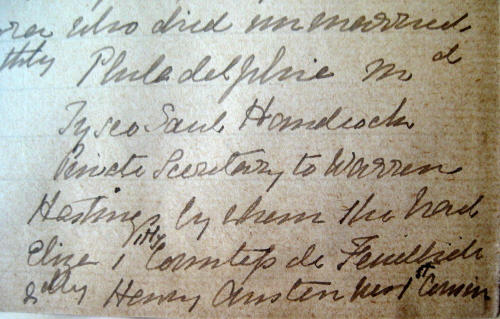 who died unmarried
thly Philadelphia md
Tyseo Saul Handcock
Private Secretary to Warren
Hastings by whom she had
Eliza 1stly Comtess de Feuillide
2dly Henry Austen her 1st Cousin